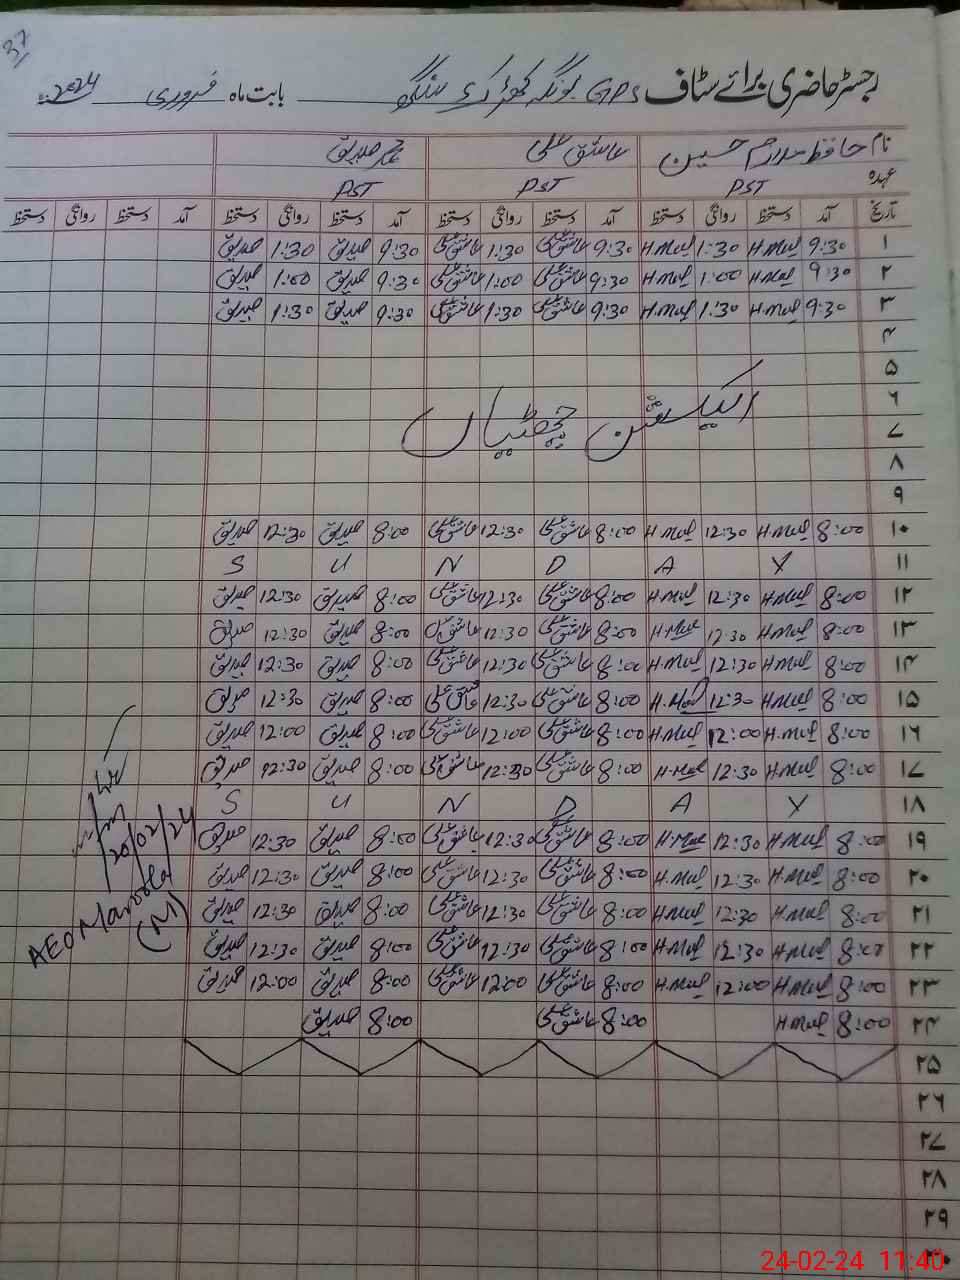 37
رجسٹر حاضری برائے سٹاف GPS بابت ماہ فروری 2024ء
نام حافظ ملازم حسین عاشق علی محمد صدیق
عہدہ PST PST PST
تاریخ آمد دستخط روانگی دستخط آمد دستخط روانگی دستخط آمد دستخط روانگی دستخط آمد دستخط روانگی دستخط
۱ 9:30 H.Mul 1:30 H.Mul 9:30 عاشق علی 1:30 عاشق علی 9:30 صدیق 1:30 صدیق
۲ 9:30 H.Mul 1:00 H.Mul 9:30 عاشق علی 1:00 عاشق علی 9:30 صدیق 1:00 صدیق
۳ 9:30 H.Mul 1:30 H.Mul 9:30 عاشق علی 1:30 عاشق علی 9:30 صدیق 1:30 صدیق
۴
۵
۶
الیکشن چھٹیاں
۷
۸
۹
۱۰ 8:00 H.Mul 12:30 H.Mul 8:00 عاشق علی 12:30 عاشق علی 8:00 صدیق 12:30 صدیق
۱۱ S U N D A Y
۱۲ 8:00 H.Mul 12:30 H.Mul 8:00 عاشق علی 12:30 عاشق علی 8:00 صدیق 12:30 صدیق
۱۳ 8:00 H.Mul 12:30 H.Mul 8:00 عاشق علی 12:30 عاشق علی 8:00 صدیق 12:30 صدیق
۱۴ 8:00 H.Mul 12:30 H.Mul 8:00 عاشق علی 12:30 عاشق علی 8:00 صدیق 12:30 صدیق
۱۵ 8:00 H.Mul 12:30 H.Mul 8:00 عاشق علی 12:30 عاشق علی 8:00 صدیق 12:30 صدیق
۱۶ 8:00 H.Mul 12:00 H.Mul 8:00 عاشق علی 12:00 عاشق علی 8:00 صدیق 12:00 صدیق
۱۷ 8:00 H.Mul 12:30 H.Mul 8:00 عاشق علی 12:30 عاشق علی 8:00 صدیق 12:30 صدیق
۱۸ S U N D A Y
۱۹ 8:00 H.Mul 12:30 H.Mul 8:00 عاشق علی 12:30 عاشق علی 8:00 صدیق 12:30 صدیق
۲۰ 8:00 H.Mul 12:30 H.Mul 8:00 عاشق علی 12:30 عاشق علی 8:00 صدیق 12:30 صدیق
۲۱ 8:00 H.Mul 12:30 H.Mul 8:00 عاشق علی 12:30 عاشق علی 8:00 صدیق 12:30 صدیق
۲۲ 8:00 H.Mul 12:30 H.Mul 8:00 عاشق علی 12:30 عاشق علی 8:00 صدیق 12:30 صدیق
۲۳ 8:00 H.Mul 12:00 H.Mul 8:00 عاشق علی 12:00 عاشق علی 8:00 صدیق 12:00 صدیق
۲۴ 8:00 H.Mul 8:00 عاشق علی 8:00 صدیق
۲۵
۲۶
۲۷
۲۸
۲۹
20/02/24
AEO Maroola
(M)
24-02-24 11:40